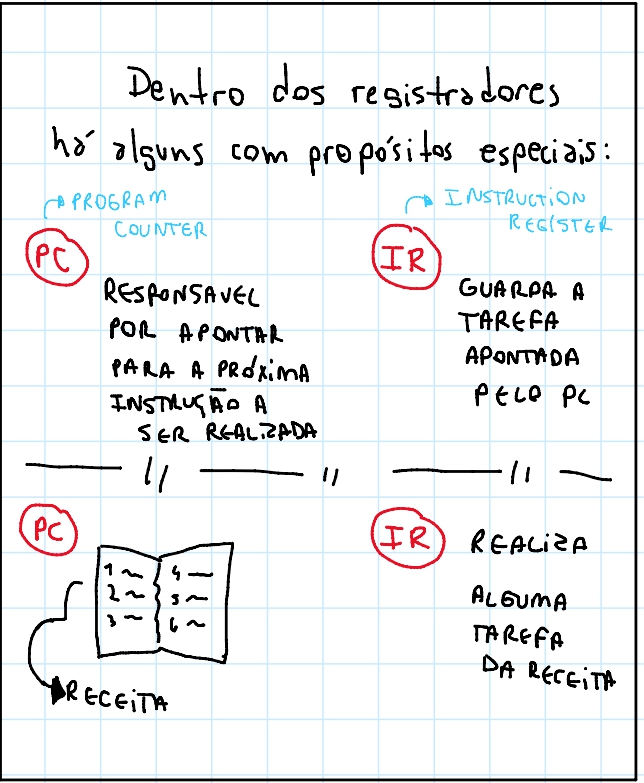 Dentro dos registradores
há alguns com propósitos especiais:
PROGRAM
COUNTER
PC
RESPONSAVEL
POR APONTAR
PARA A PRÓXIMA
INSTRUÇÃO A
SER REALIZADA
INSTRUCTION
REGISTER
IR
GUARDA A
TAREFA
APONTADA
PELO PC
PC
1 4
2 5
3 6
RECEITA
IR REALIZA
ALGUMA
TAREFA
DA RECEITA